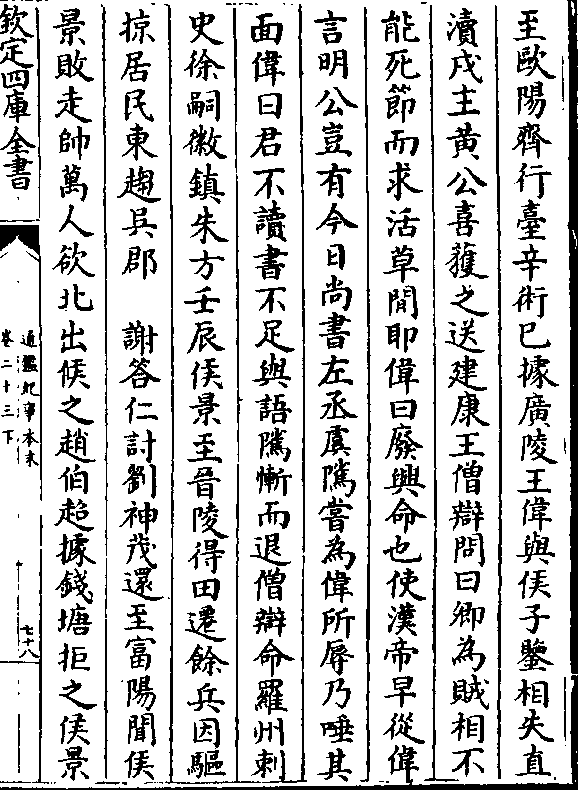 至歐陽齊行臺辛術已據廣陵王偉與侯子鑒相失直
瀆戍主黃公喜獲之送建康王僧辯問曰卿為賊相不
能死節而求活草間耶偉曰廢興命也使漢帝早從偉
言明公豈有今日尚書左丞虞隲嘗為偉所辱乃唾其
面偉曰君不讀書不足與語隲慚而退僧辯命羅州刺
史徐嗣徽鎮朱方壬辰侯景至晉陵得田遷餘兵因驅
掠居民東趨吳郡　謝答仁討劉神茂還至富陽聞侯
景敗走帥萬人欲北出候之趙伯超據錢塘拒之侯景
欽定四庫全書
通鑑紀事本末
卷二十三下
七十八